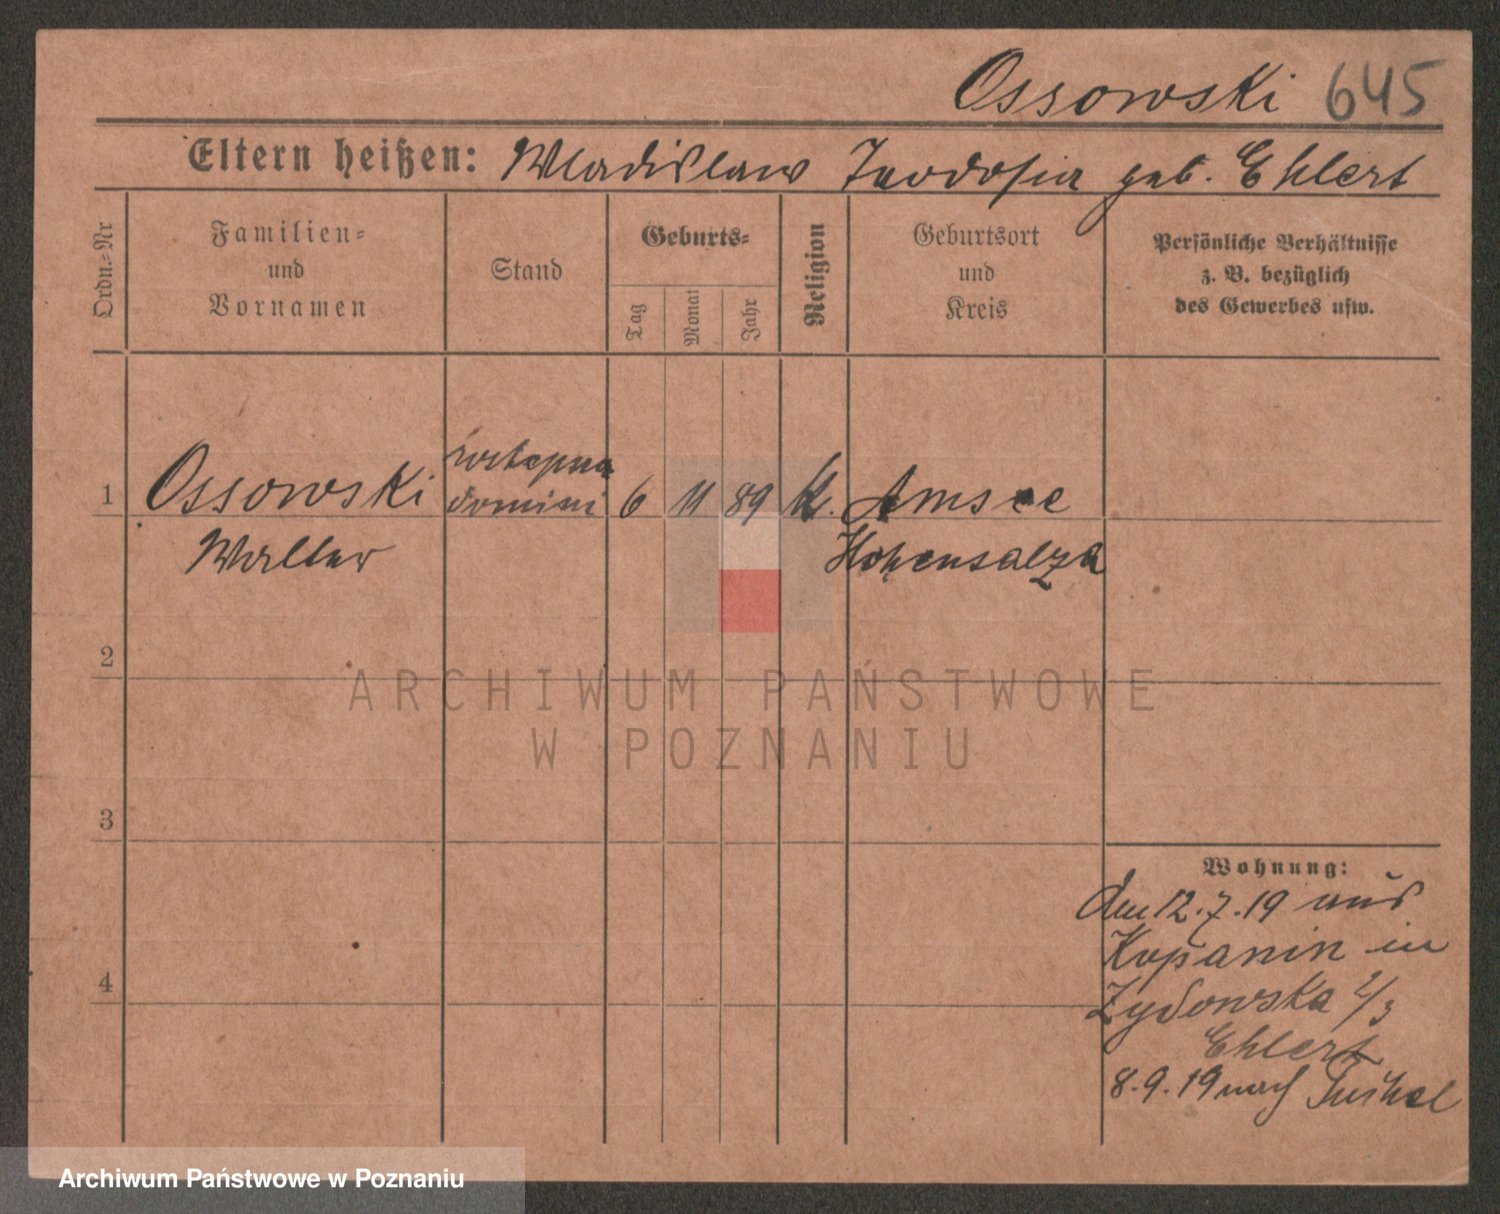 Ossowski 645
Eltern heißen: Wladislaw Teodosia geb. Ehlert
Ordn.-Nr
Familien-
und
Vornamen
Stand
Geburts-
Tag
Monat
Jahr
Religion
Geburtsort
und
Kreis
Persönliche Verhältnisse
z. B. bezüglich
des Gewerbes usw.
1 Ossowski 6 11 89 K. Amsee
Walter Hohensalza
2
3
4
Wohnung:
den 12.7.19 aus
Kopanin in
Zydowska 2/3
Ehlert
8.9.19 nach Tuchel
ARCHIWUM PAŃSTWOWE
W POZNANIU
Archiwum Państwowe w Poznaniu